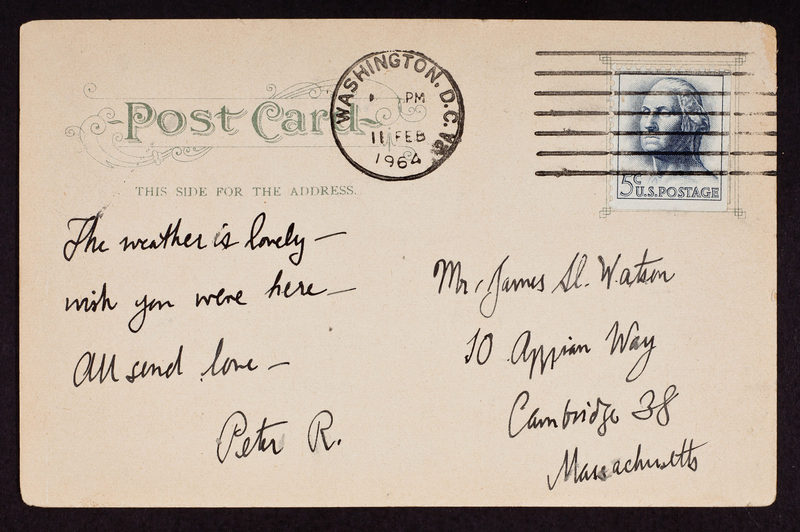 Post Card
THIS SIDE FOR THE ADDRESS.
WASHINGTON, D.C.
PM
11 FEB
1964
5¢
U.S. POSTAGE
The weather is lovely —
wish you were here —
All send love —
Peter R.
Mr. James D. Watson
10 Appian Way
Cambridge 38
Massachusetts